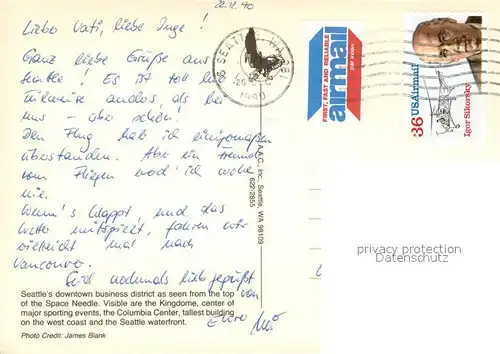 22.11.90
Liebo Vati, liebe Inge!
Ganz liebe Grüße aus
Seattle. Es ist toll hier
Teilweise anders, als bei
uns - aber schön!
Den Flug hab ich einigermaßen
überstanden. Aber ein Freund
vom Fliegen werd' ich wohl
nie.
Wenn's klappt, und das
Wetter mitspielt, fahren wir
vielleicht mal nach
Vancouver.
Seid nochmals lieb gegrüßt
von
Eurer
SEATTLE, WA 98
26
1990
FIRST, FAST AND RELIABLE
airmail
par avion
36 USAirmail
Igor Sikorsky
A.A.C., Inc., Seattle, WA 98109
622-2855
privacy protection
Datenschutz
Seattle's downtown business district as seen from the top
of the Space Needle. Visible are the Kingdome, center of
major sporting events, the Columbia Center, tallest building
on the west coast and the Seattle waterfront.
Photo Credit: James Blank